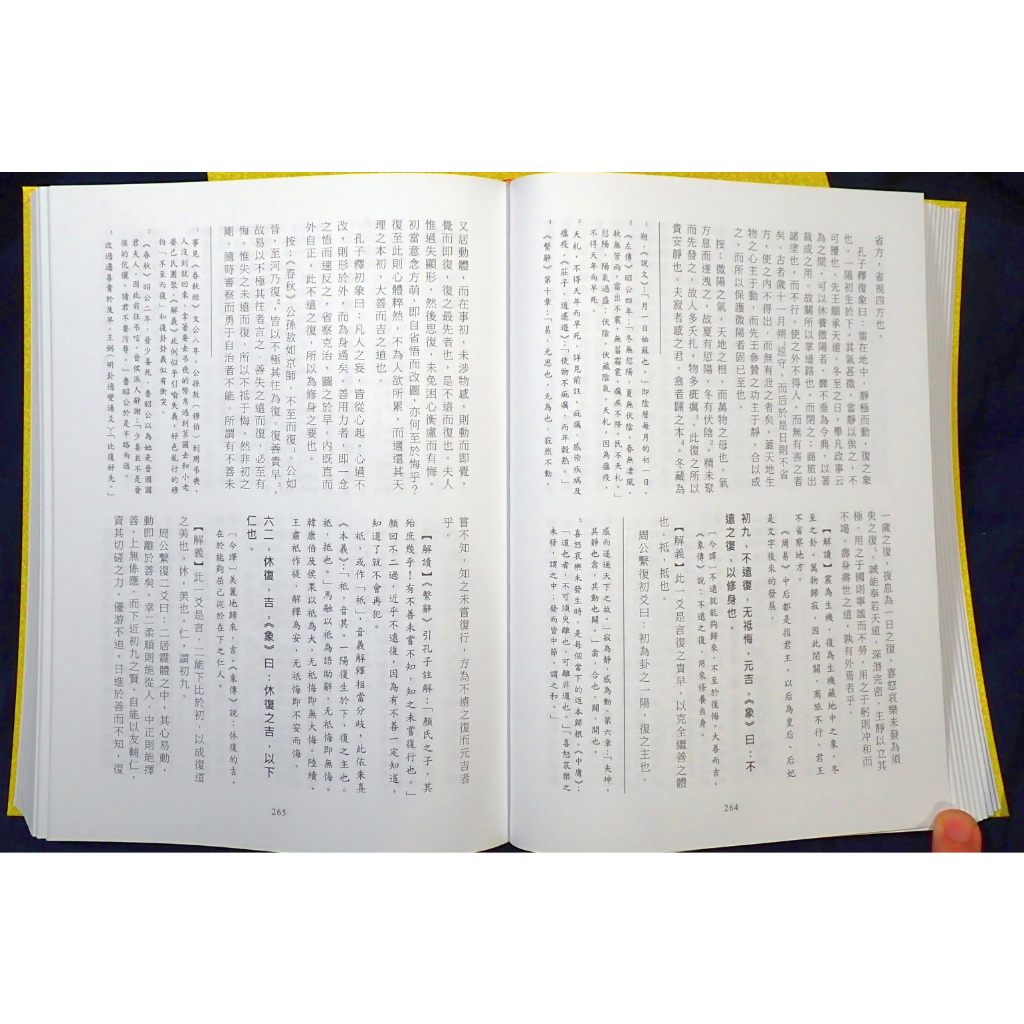 省方，省視四方也。
孔子釋復象曰：雷在地中，靜極而動，復之象
也。一陽初生於下，其氣甚微，當靜以俟之，不
可擾也。先王順承天道，冬至之日，舉凡政事云
為之間，可以休養微陽者，靡不垂為令典，以著
裁成之用。故關所以掌道路也，而閉之；商旅出
諸塗也，而不行，使之外不得入，而無有害之者
矣。古者歲十一月朔，巡守，而后於是日則不省
方，使之內不得出，而無有泄之者矣。蓋天地生
物之心主于動，而先王參贊之功王于靜。合以成
之，而所以保護微陽者固已至也。
按：微陽之氣，天地之根，而萬物之母也。氣
方息而遂洩之，故夏有愆陽，冬有伏陰。精未聚
而先發之，故人多夭札，物多疵癘。此復之所以
貴安靜也。夫寂者感之君，翕者闢之本。冬藏為
1 朔，《說文》：「月一日始蘇也。」即陰曆每月的初一日。
2 《左傳》昭公四年：「冬無愆陽，夏無伏陰，春無淒風，
秋無苦雨，雷出不震，無菑霜雹，癘疾不降，民不夭札。」
愆陽，陽氣過盛；伏陰，伏藏陰氣。夭札，因為瘟疫，
不得天年而早死。
3 夭札，不得天年而早死，詳見前註。疵癘，感染疾病及
瘟疫。《莊子．逍遙遊》：「使物不疵癘，而年穀熟。」
4 《繫辭》第十章：「易，无思也，无為也，寂然不動，
一歲之復，夜息為一日之復，喜怒哀樂未發為須
臾之復。誠能奉若天道，深潛完密，主靜以立其
極，用之于國則寧謐而不勞，用之于躬則冲和而
不竭。壽身壽世之道，孰有外焉者乎。
【解讀】震為生機，復為生機藏地中之象，冬
至之卦。萬物歸寂，因此閉關，商旅不行，君王
不省察地方。
《周易》中后都是指君主，以后為皇后、后妃
是文字後來的發展。
初九，不遠復，无祗悔，元吉。《象》曰：不
遠之復，以修身也。
〔今譯〕不遠就能夠歸來，不至於後悔，大善而吉。
《象傳》說：不遠之復，用來修養自身。
【解義】此一爻是言復之貴早，以克全繼善之體
也。祗，抵也。
周公繫復初爻曰：初為卦之一陽，復之主也。
感而遂通天下之故。」寂為靜，感為動。第六章：「夫坤，
其靜也翕，其動也闢。」翕，合也。闢，開也。
5 喜怒哀樂未發生時，是每個當下的返本歸根。《中庸》：
「道也者，不可須臾離也，可離非道也。」「喜怒哀樂之
未發，謂之中；發而皆中節，謂之和。」
264
又居動體，而在事初，未涉物感，則動而即覺，
覺而即復，復之最先者也，是不遠而復也。夫人
惟過失顯形，然後思復，未免困心衡慮而有悔。
初當意念方萌，即自省悟而改圖，亦何至於悔乎？
復至此則心體粹然，不為人欲所累，而適還其天
理之本初，大善而吉之道也。
孔子釋初象曰：凡人之妄，皆從心起。心過不
改，則形於外，而為身過矣。善用力者，即一念
之悟而速反之，省察克治，圖之於早，內既直而
外自正，此不遠之復，所以為修身之要也。
按：《春秋》公孫敖如京師，不至而復，公如
晉，至河乃復，皆以不極其往為復。復善貴早，
故易以不極其往者言之。善失之遠而復，必至有
悔，惟失之未遠而復，所以不祗于悔。然非初之
剛，隨時審察而勇于自治者不能。所謂有不善未
1 事見《春秋經》文公八年。公孫敖（穆伯）到周弔喪，
人沒到就回來，拿著要去弔喪的幣帛逃到莒國去和小老
婆己氏團聚。《解義》此例似乎引喻失義，好色亂行的穆
伯「不至而復」和復卦卦義似有衝突。
2 《春秋》昭公二年，晉少姜死，魯昭公以為她是晉國國
君夫人，因此前往弔唁。晉侯派人辭謝：「少姜並不是晉
侯的伉儷，請君不要污辱。」魯昭公於是半路而返。
3 改過遷善貴於及早。王弼《明卦適變通爻》：「比復好先。」
嘗不知，知之未嘗復行，方為不遠之復而元吉者
乎。
【解讀】《繫辭》引孔子註解：「顏氏之子，其
殆庶幾乎！有不善未嘗不知，知之未嘗復行也。」
顏回不二過，近乎不遠復，因為有不善一定知道，
知道了就不會再犯。
祗，或作「衹」，音義解釋相當分歧，此依朱熹
《本義》：「祗，音其。一陽復生於下，復之主也。
祗，抵也。」馬融以祗為語助辭，无祗悔即無悔。
韓康伯及侯果以祗為大，无祗悔即無大悔。陸績、
王肅祗作禔，解釋為安，无祗悔即不安而悔。
六二，休復，吉。《象》曰：休復之吉，以下
仁也。
〔今譯〕美麗地歸來，吉。《象傳》說：休復的吉，
在於能夠屈己從於在下之仁人。
【解義】此一爻是言，二能下比於初，以成復道
之美也。休，美也。仁，謂初九。
周公繫復二爻曰：二居震體之中，其心易動，
動即離於善矣。幸二柔順則能從人，中正則能擇
善。上無係應，而下近初九之賢，自能以友輔仁，
資其切磋之力，優游不迫，日進於善而不知，復
265